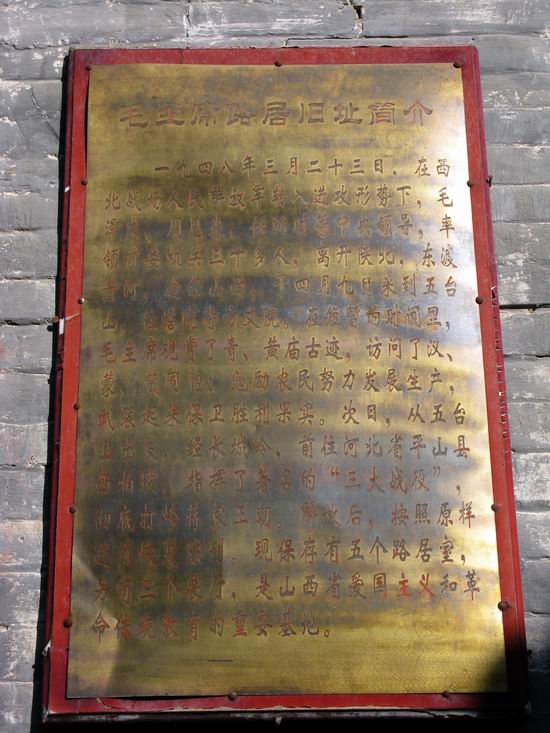 毛主席路居旧址简介
一九四八年三月二十三日，在西
北战场人民解放军转入进攻形势下，毛
泽东、周恩来、任弼时等中央领导，率
领前委机关二千多人，离开陕北，东渡
黄河，途经山西，于四月九日来到五台
山，在塔院寺方丈院。在短暂的时间里，
毛主席观赏了青、黄庙古迹，访问了汉、
蒙、藏同胞，勉励农民努力发展生产，
武装起来保卫胜利果实。次日，从五台
山出发，经长城岭，前往河北省平山县
西柏坡，指挥了著名的“三大战役”，
彻底打垮蒋家王朝。解放后，按照原样
进行恢复陈列。现保存有五个路居室，
另有三个展厅，是山西省爱国主义和革
命传统教育的重要基地。